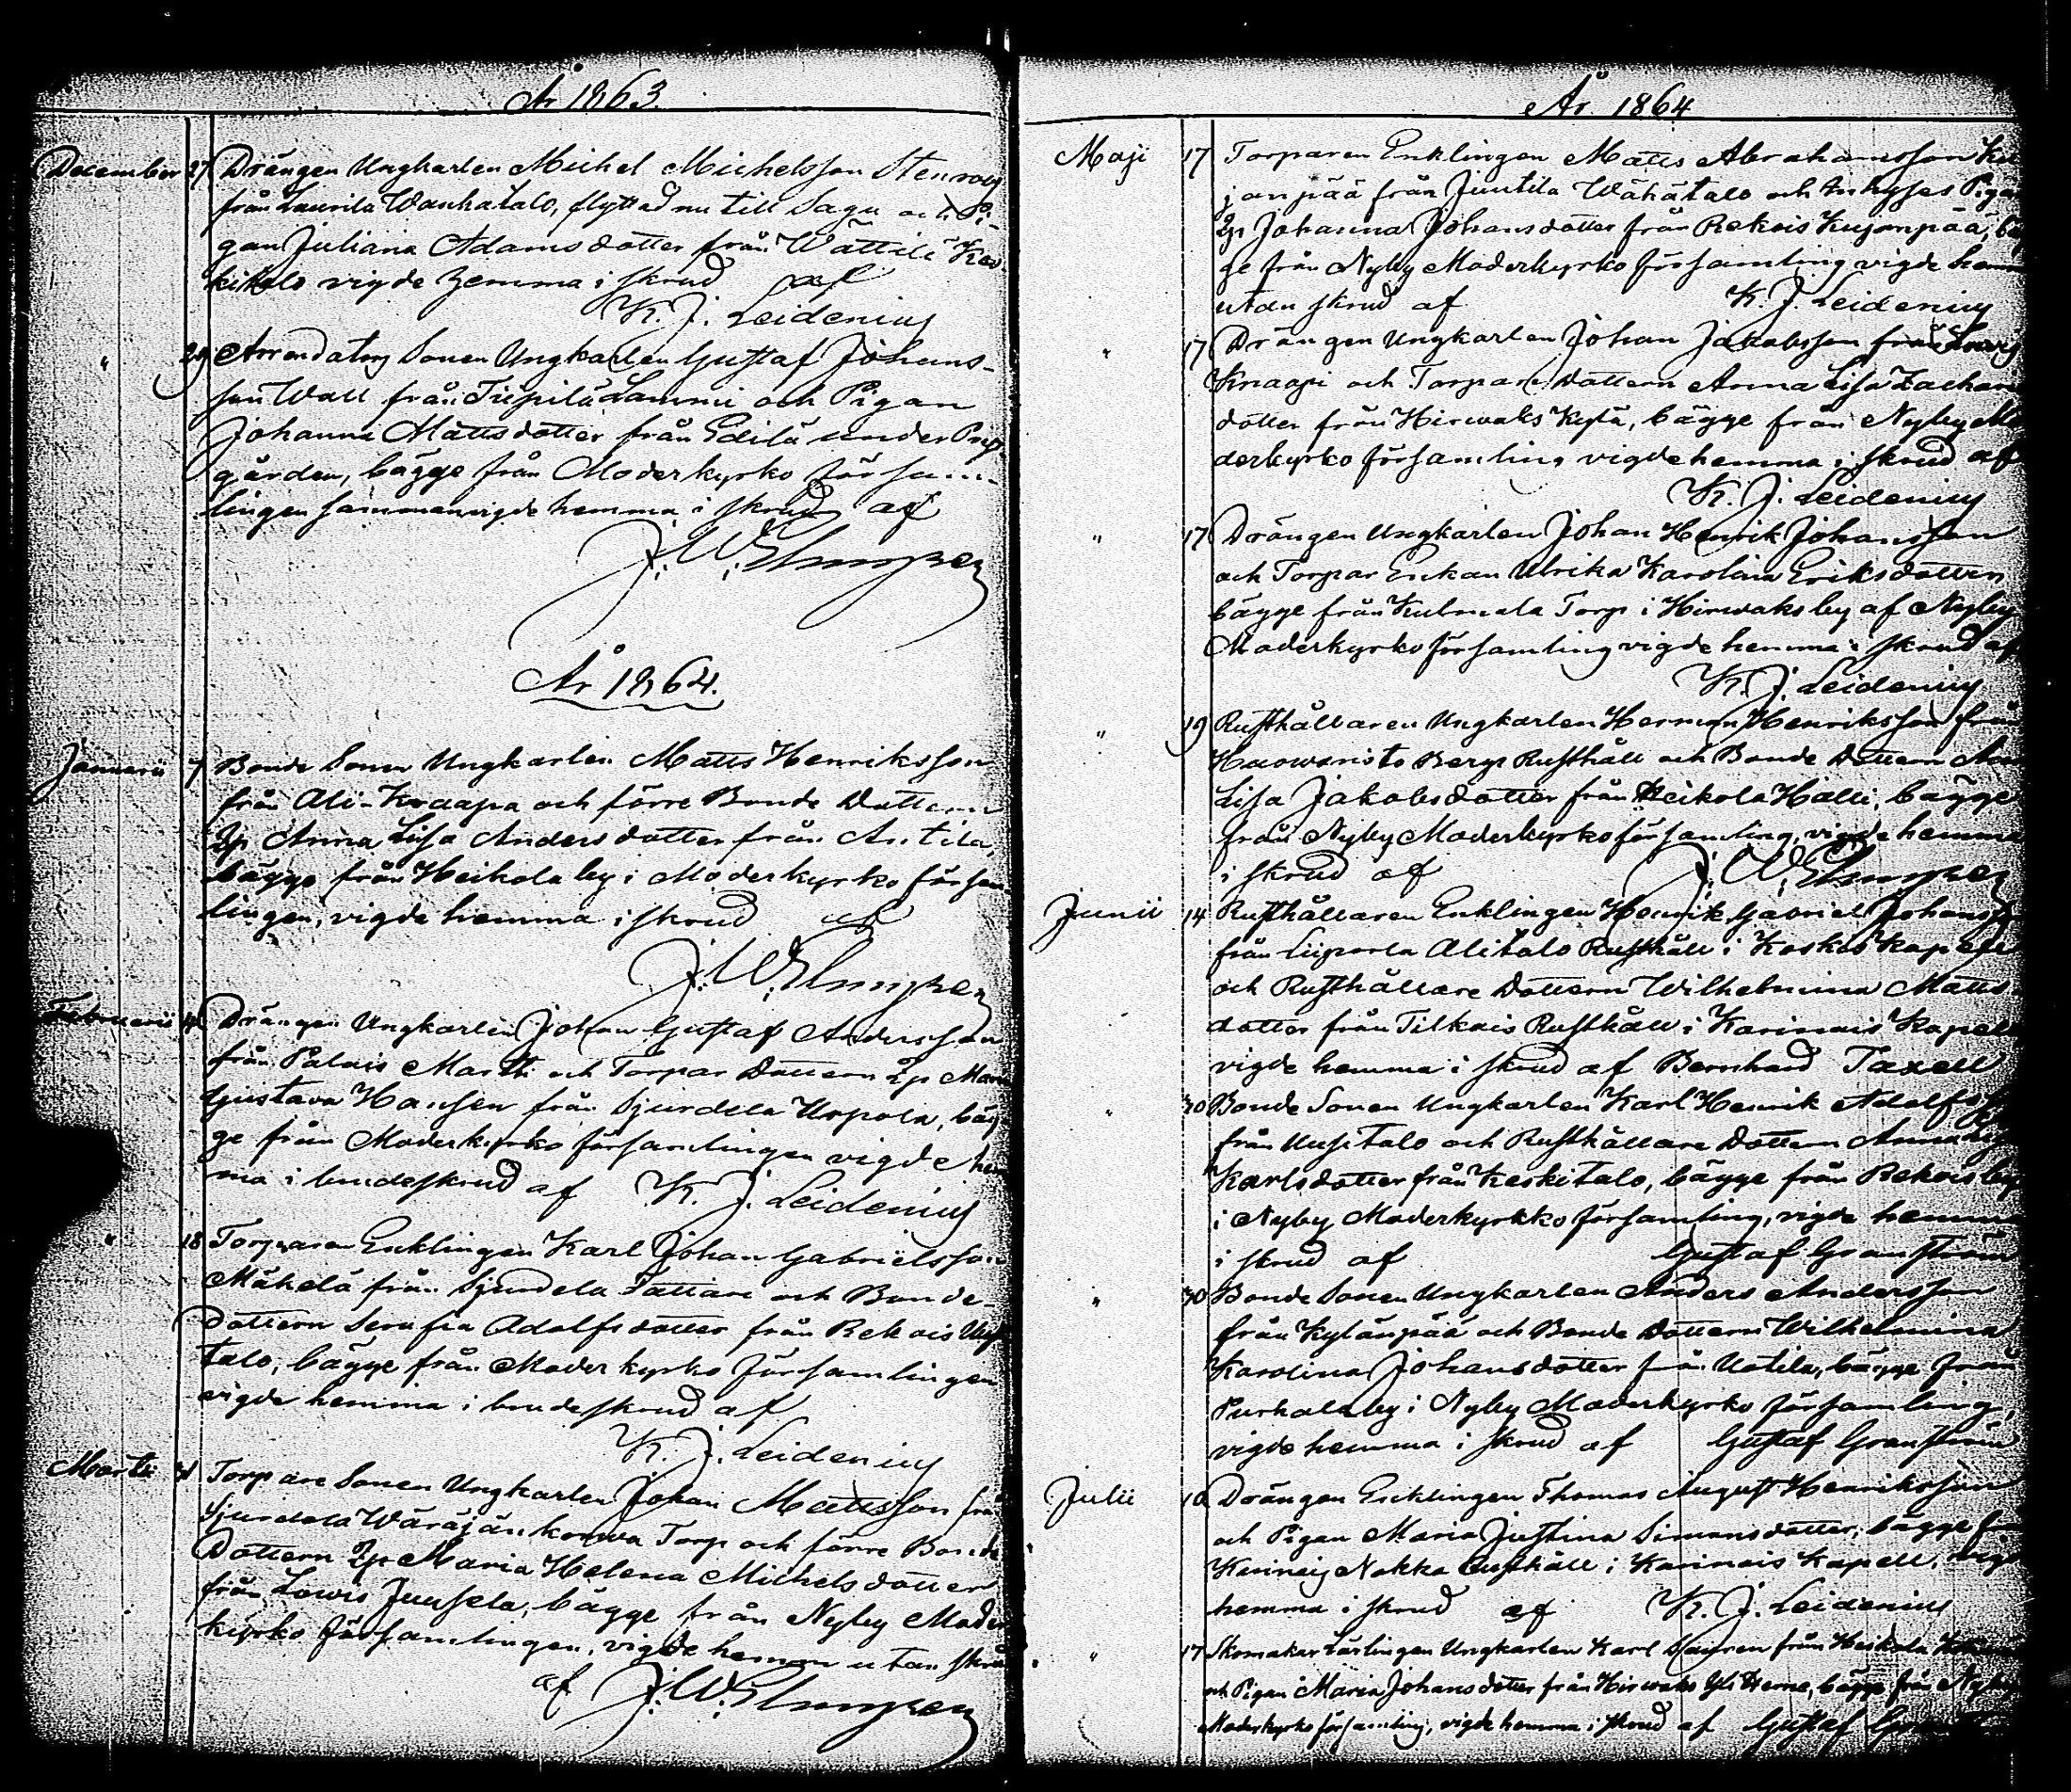 År 1863.
December 27 Drängen Ungkarlen Michel Michelsson Stenroos
från Laurila Wanhatalo, flyttad nu till Sagu och Pi-
gan Juliana Adamsdotter från Wättilä Kes
kitalo vigde hemma i skrud af
K. J. Leidenius
" 29 Arrendators Sonen Ungkarlen Gustaf Johans-
son Wall från Tiipilä Lammi och Pigan
Johanna Mattsdotter från Edilä under Prest
gården, bägge från Moderkyrko försam-
lingen sammanvigde hemma i skrud af
År 1864.
Januarii 7 Bonde Sonen Ungkarlen Matts Henriksson
från Ali-Knaapa och förre Bonde Dottern
Ip Anna Lisa Andersdotter från Antila,
bägge från Heikola by i Moderkyrko försam
lingen, vigde hemma i skrud af
Februarii Drängen Ungkarlen Johan Gustaf Andersson
från Palais Martti och Torpar Dottern Ip Maria
Gustava Hansen från Sjurdela Uspola, bäg
ge från Moderkyrko församlingen vigde hem
ma i brudeskrud af K. J. Leidenius
" 18 Torparen Enklingen Karl Johan Gabrielsson
Mäkelä från Sjurdela Tattare och Bonde-
Dottern Serafia Adolfsdotter från Rekois Uusi
talo, bägge från Moder kyrko församlingen
vigde hemma i brudeskrud af
K. J. Leidenius
Martii Torpare Sonen Ungkarlen Johan Mattsson från
Sjurdela Wäräjänkorwa Torp och förre Bonde
Dottern Ip Maria Helena Michelsdotter
från Lowis Juusela, bägge från Nyby Moder
kyrko församlingen, vigde hemma utan skrud
af
År 1864
Maji 17 Torparen Enklingen Matts Abrahamsson Ku
janpää från Juutila Wähätalo och Inhyses Pigan
Ip Johanna Johansdotter från Rekois Kujanpää, bäg
ge från Nyby Moderkyrko församling vigde hemma
utan skrud af K. J. Leidenius
" 17 Drängen Ungkarlen Johan Jakobsson från
Knaapi och Torpare Dottern Anna Lisa Zachari
dotter från Hirwaks Kylä, bägge från Nyby Mo
derkyrko församling vigde hemma i skrud af
K. J. Leidenius
" 17 Drängen Ungkarlen Johan Henrik Johansson
och Torpar Enkan Ulrika Karolina Eriksdotter
bägge från Kulmala Torp i Hirwaks by af Nyby
Moderkyrko församling vigde hemma i skrud af
K. J. Leidenius
" 19 Rusthållaren Ungkarlen Herman Henriksson från
Haowaristo Bergs Rusthåll och Bonde Dottern Anna
Lisa Jakobsdotter från Heikola Halli, bägge
från Nyby Moderkyrko församling, vigde hemma
i skrud af
Junii 14 Rusthållaren Enklingen Henrik Gabriel Johansson
från Liiporla Alitalo Rusthåll i Koskis Kapell
och Rusthållare Dottern Wilhelmina Matts
dotter från Tilkais Rusthåll i Karinais Kapell
vigde hemma i skrud af Bernhard Taxell
" 30 Bonde Sonen Ungkarlen Karl Henrik Adolfsson
från Uusitalo och Rusthållare Dottern Anna Lisa
Karlsdotter från Keskitalo, bägge från Rekois by
i Nyby Moderkyrkko församling, vigde hemma
i skrud af Gustaf Granström
" 30 Bonde Sonen Ungkarlen Anders Andersson
från Kylänpää och Bonde Dottern Wilhelmina
Karolina Johansdotter från Uotila, bägge från
Purhala by i Nyby Moderkyrko församling,
vigde hemma i skrud af Gustaf Granström
Julii 10 Drängen Enklingen Thomas August Henriksson
och Pigan Maria Justina Simonsdotter, bägge från
Karinais Nokka Rusthåll i Karinais Kapell, vigde
hemma i skrud af K. J. Leidenius
" 17 Skomakar Lärlingen Ungkarlen Karl från Heikola
och Pigan Maria Johansdotter från Hirwaks Yli Herne, bägge från Nyby
Moderkyrko församling, vigde hemma i skrud af Gustaf